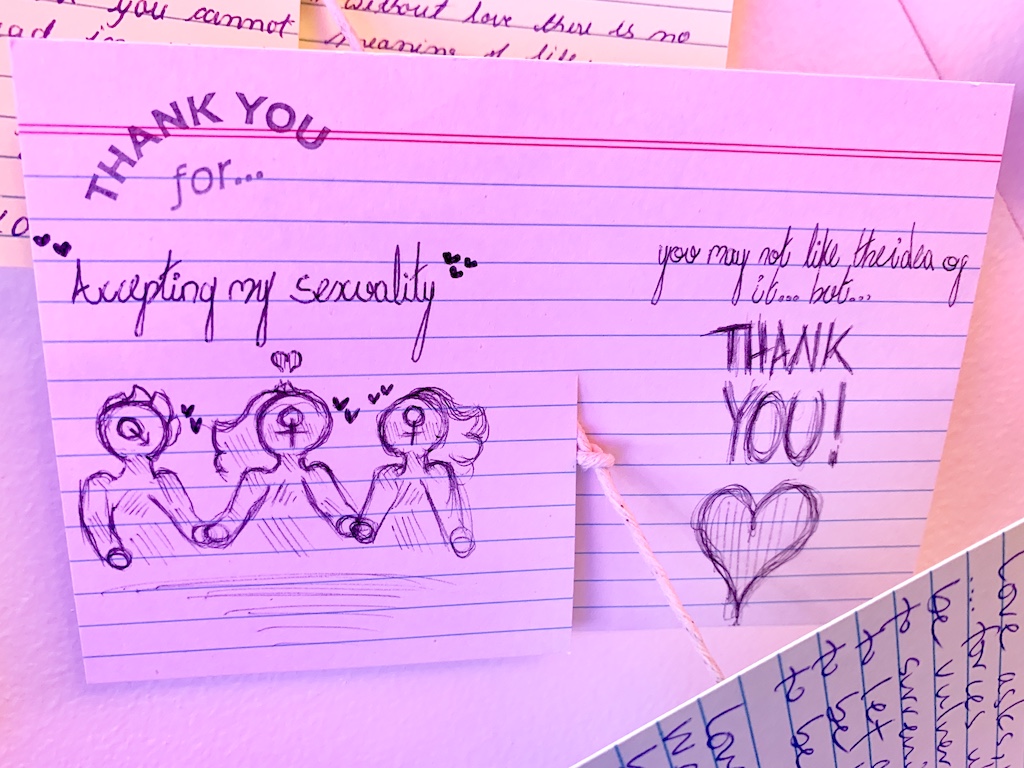 you cannot
without love there is no
meaning of life.
THANK YOU
for...
Accepting my sexuality
you may not like the idea of
it... but...
THANK
YOU!
love asks t
... forces u
be vulner
to surren
to let
to be
to be